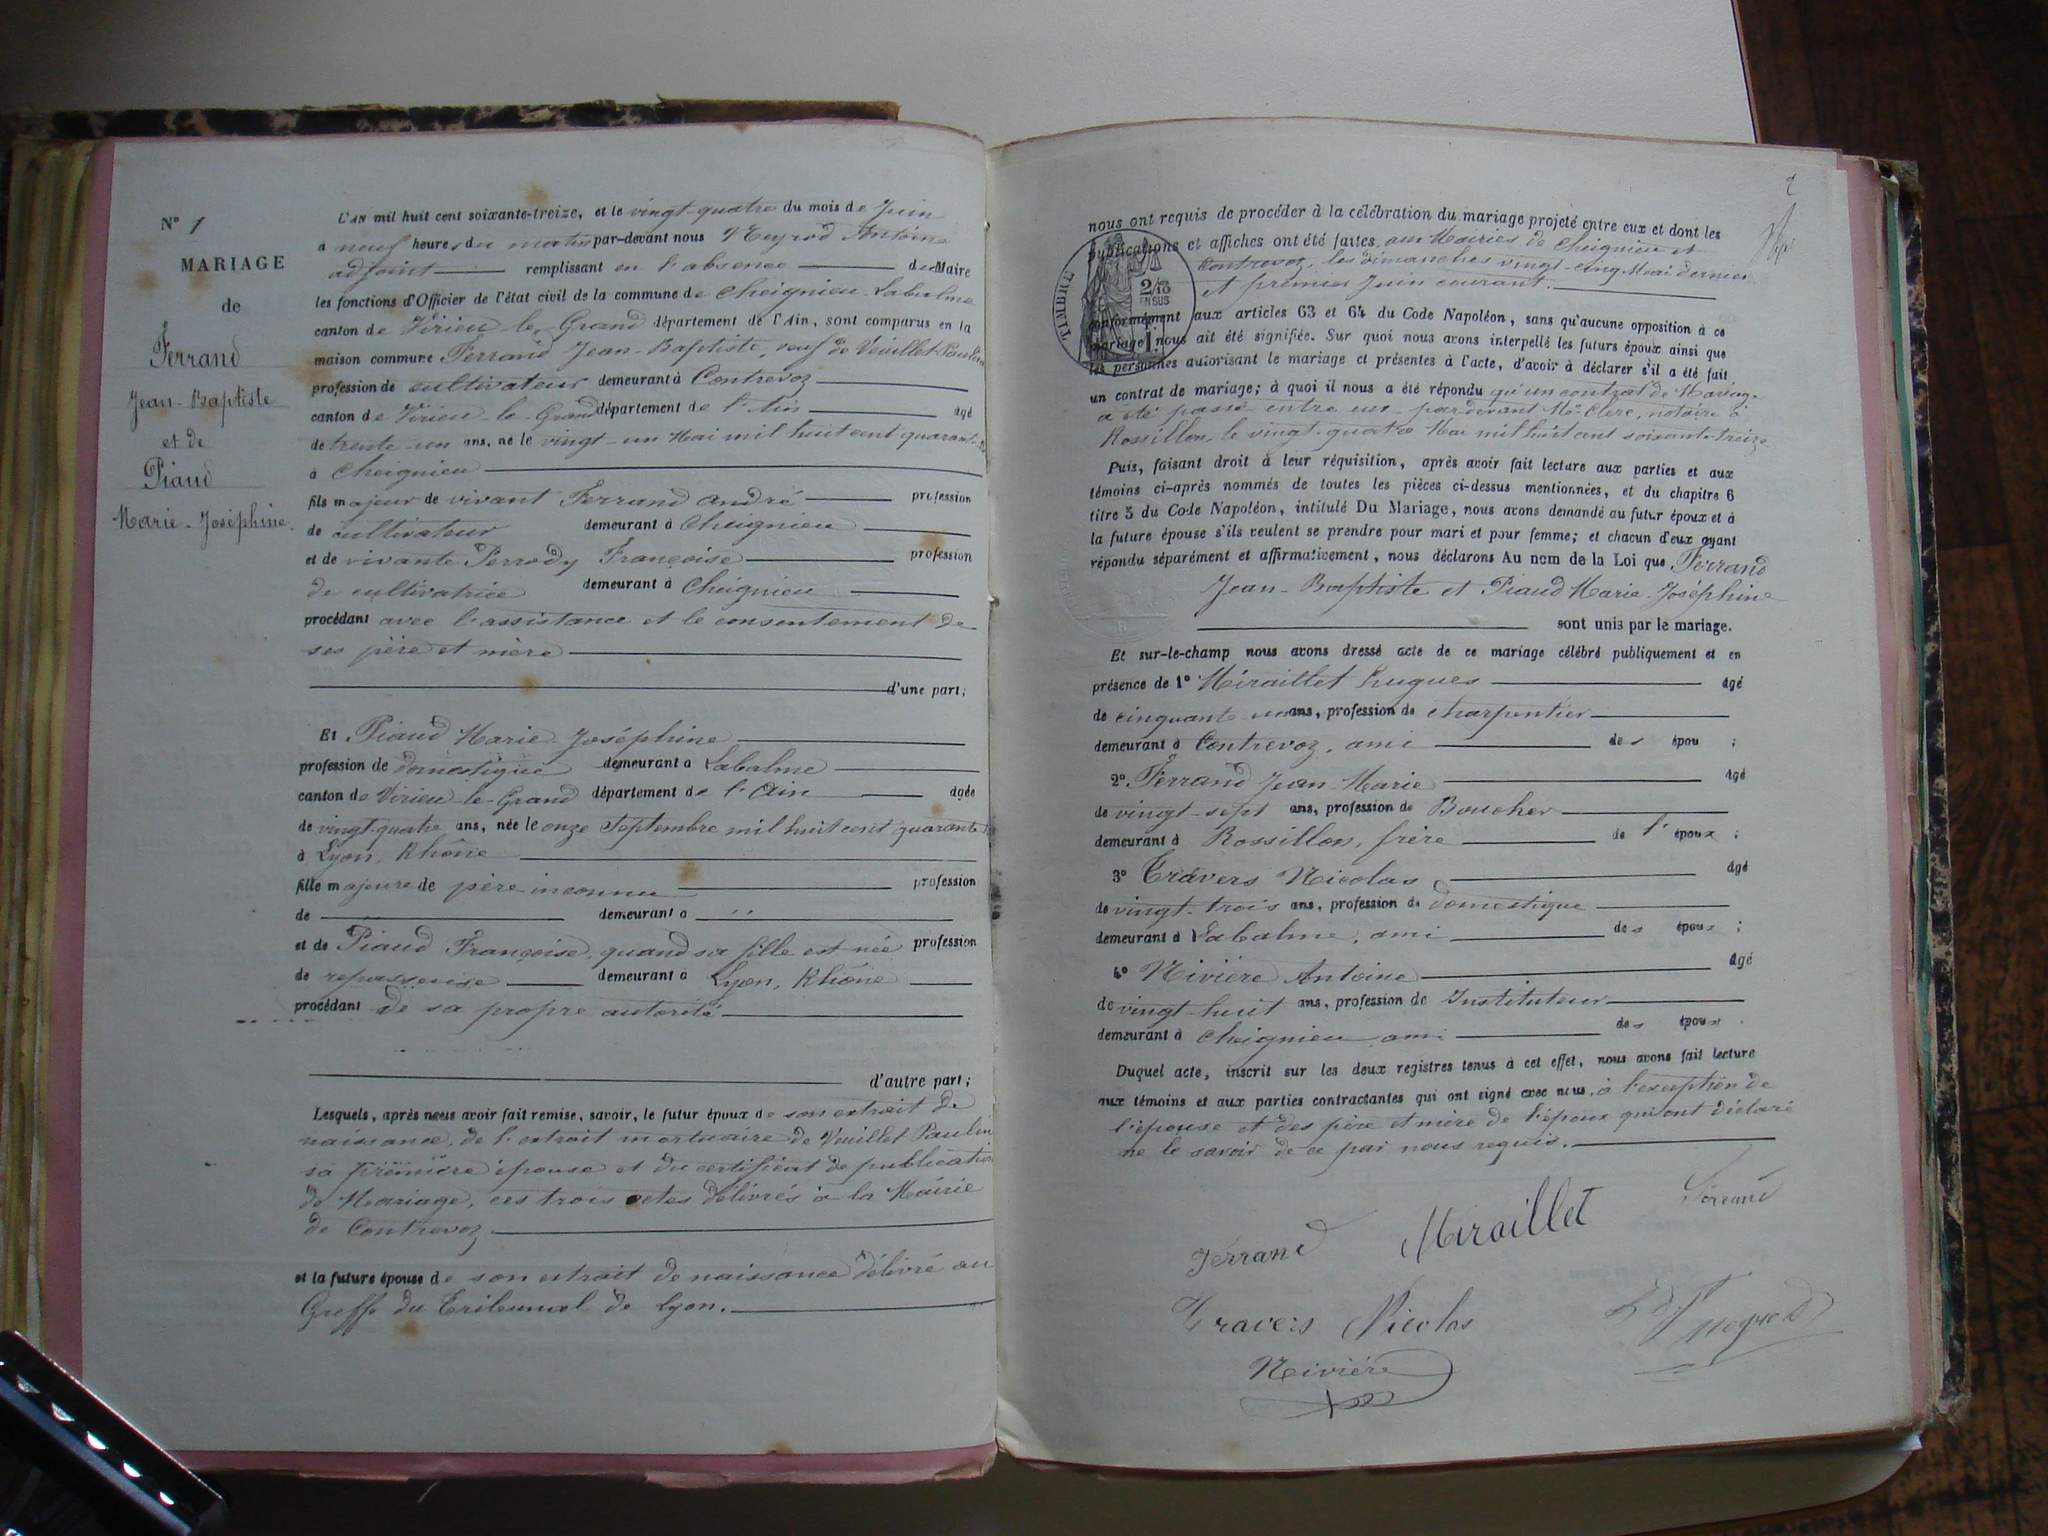 N° 1
MARIAGE
de
Ferrand
Jean-Baptiste
et de
Piaud
Marie-Joséphine.
L'AN mil huit cent soixante-treize, et le vingt-quatre du mois de Juin
a neuf heures du matin par-devant nous Neyrod Antoine
adjoint remplissant en l'absence du Maire
les fonctions d'Officier de l'état civil de la commune de Cheignieu-Labalme
canton de Virieu-le-Grand département de l'Ain, sont comparus en la
maison commune Ferrand Jean-Baptiste, veuf de Veuillet Pauline
profession de cultivateur demeurant à Contrevoz
canton de Virieu-le-Grand département de l'Ain agé
de trente-un ans, né le vingt-un Mai mil huit cent quarante
à Cheignieu
fils majeur de vivant Ferrand André profession
de cultivateur demeurant à Cheignieu
et de vivante Perrody Françoise profession
de cultivatrice demeurant à Cheignieu
procédant avec l'assistance et le consentement de
ses père et mère
d'une part;
Et Piaud Marie-Joséphine
profession de domestique demeurant a Labalme
canton de Virieu-le-Grand département de l'Ain agée
de vingt-quatre ans, née le onze Septembre mil huit cent quarante
à Lyon, Rhône
fille majeure de père inconnu profession
de demeurant a "
et de Piaud Françoise, quand sa fille est née profession
de repasseuse demeurant a Lyon, Rhône
procédant de sa propre autorité
d'autre part;
Lesquels, après nous avoir fait remise, savoir, le futur époux de son extrait de
naissance, de l'extrait mortuaire de Veuillet Pauline
sa première épouse et du certificat de publication
de Mariage, ces trois actes délivrés à la Mairie
de Contrevoz
et la future épouse de son extrait de naissance délivré au
Greffe du Tribunal de Lyon.
2
nous ont requis de procéder à la célébration du mariage projeté entre eux et dont les
publications et affiches ont été faites aux Mairies de Cheignieu et
Contrevoz, les dimanches vingt-cinq Mai dernier
et premier Juin courant.
TIMBRE
2/10
EN SUS
conformément aux articles 63 et 64 du Code Napoléon, sans qu'aucune opposition à ce
mariage nous ait été signifiée. Sur quoi nous avons interpellé les futurs époux ainsi que
les personnes autorisant le mariage et présentes à l'acte, d'avoir à déclarer s'il a été fait
un contrat de mariage; à quoi il nous a été répondu qu'un contrat de Mariage
a été passé entre eux par-devant Me Clerc, notaire à
Rossillon, le vingt-quatre Mai mil huit cent soixante-treize
Puis, faisant droit à leur réquisition, après avoir fait lecture aux parties et aux
témoins ci-après nommés de toutes les pièces ci-dessus mentionnées, et du chapitre 6
titre 5 du Code Napoléon, intitulé Du Mariage, nous avons demandé au futur époux et à
la future épouse s'ils veulent se prendre pour mari et pour femme; et chacun d'eux ayant
répondu séparément et affirmativement, nous déclarons Au nom de la Loi que Ferrand
Jean-Baptiste et Piaud Marie-Joséphine
sont unis par le mariage.
Et sur-le-champ nous avons dressé acte de ce mariage célébré publiquement et en
présence de 1° Miraillet Hugues agé
de cinquante-un ans, profession de charpentier
demeurant à Contrevoz, ami des épou ;
2° Ferrand Jean-Marie agé
de vingt-sept ans, profession de Boucher
demeurant à Rossillon, frère de l'époux ;
3° Travers Nicolas agé
de vingt-trois ans, profession de domestique
demeurant à Labalme, ami des époux ;
4° Nivière Antoine agé
de vingt-huit ans, profession de Instituteur
demeurant à Cheignieu, ami des époux .
Duquel acte, inscrit sur les deux registres tenus à cet effet, nous avons fait lecture
aux témoins et aux parties contractantes qui ont signé avec nous, à l'exception de
l'épouse et des père et mère de l'époux qui ont déclaré
ne le savoir de ce par nous requis.
Ferrand Miraillet Ferrand
Travers Nicolas Neyrod
Nivière